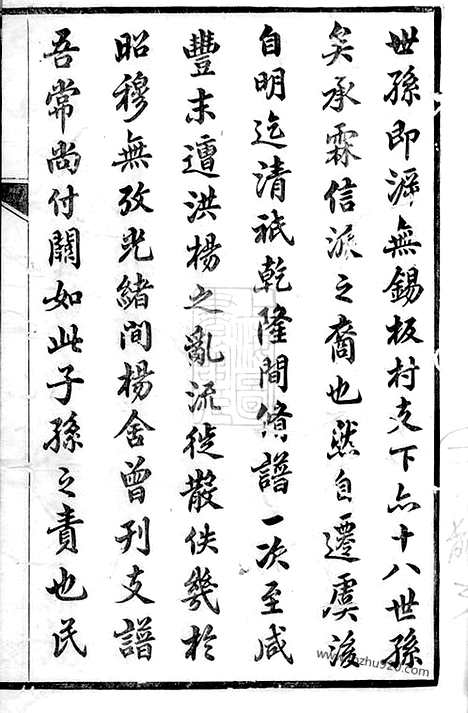 世孫即遷無錫板村支下亦十八世孫
矣承霖信派之裔也然自遷虞後
自明迄清祇乾隆間脩譜一次至咸
豐末遭洪楊之亂流徙散佚幾於
昭穆無攷光緒间楊舍曾刊支譜
吾常尚付闕如此子孫之責也民